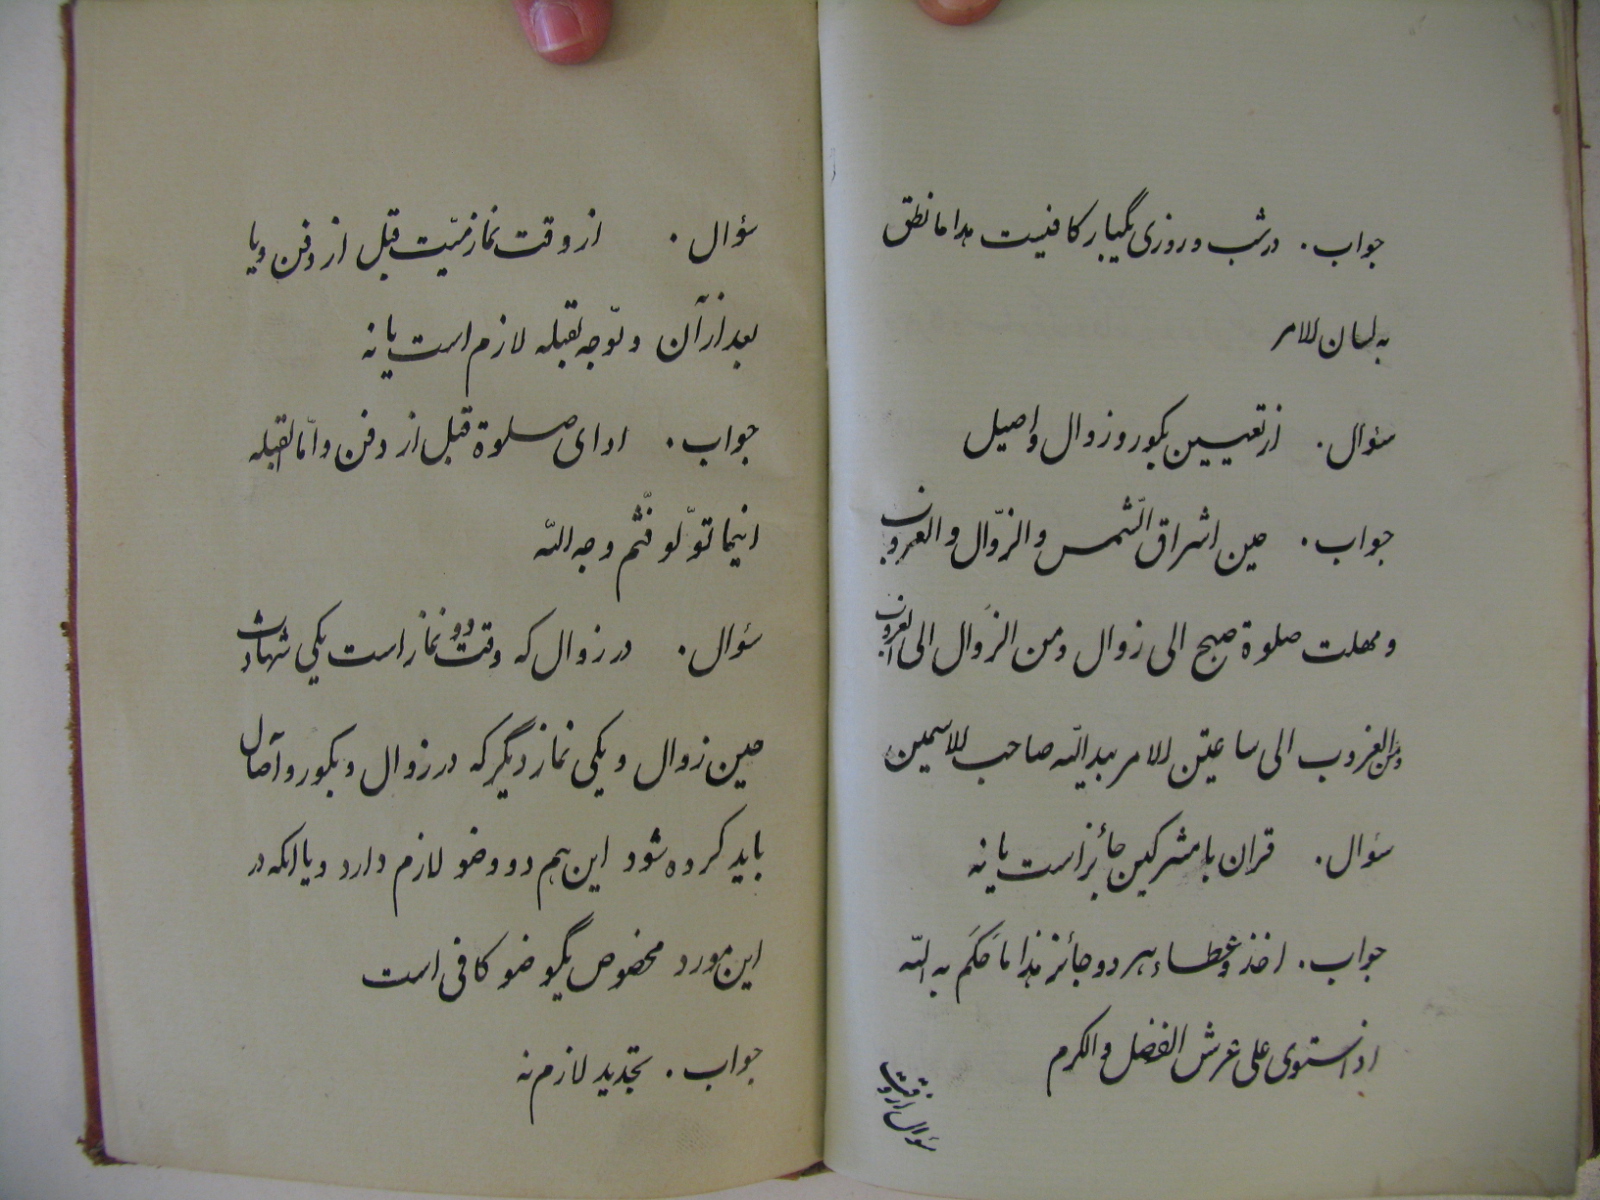 جواب . در شب و روزی یکبار کافیست هذا ما نطق
به لسان الامر
سؤال . از تعیین بکور و زوال و اصیل
جواب . حین اشراق الشّمس و الزّوال و الغروب
و مهلت صلوة صبح الی زوال و من الزّوال الی الغروب
و من الغروب الی ساعتین الامر بید اللّه صاحب الاسمین
سؤال . قران با مشرکین جائز است یا نه
جواب . اخذ و عطاء هر دو جائز هذا ما حَکَم به اللّه
اذ استوی علی عرش الفضل و الکرم
سؤال از وقت
سؤال . از وقت نماز میّت قبل از دفن و یا
بعد از آن و توّجه بقبله لازم است یا نه
جواب . ادای صلوة قبل از دفن و امّا القبله
اینما تولّو فثمّ وجه اللّه
سؤال . در زوال که وقت دو نماز است یکی شهادت
حین زوال و یکی نماز دیگر که در زوال و بکور و آصال
باید کرده شود این هم دو وضو لازم دارد و یا آنکه در
این مورد مخصوص یک وضو کافی است
جواب . تجدید لازم نه